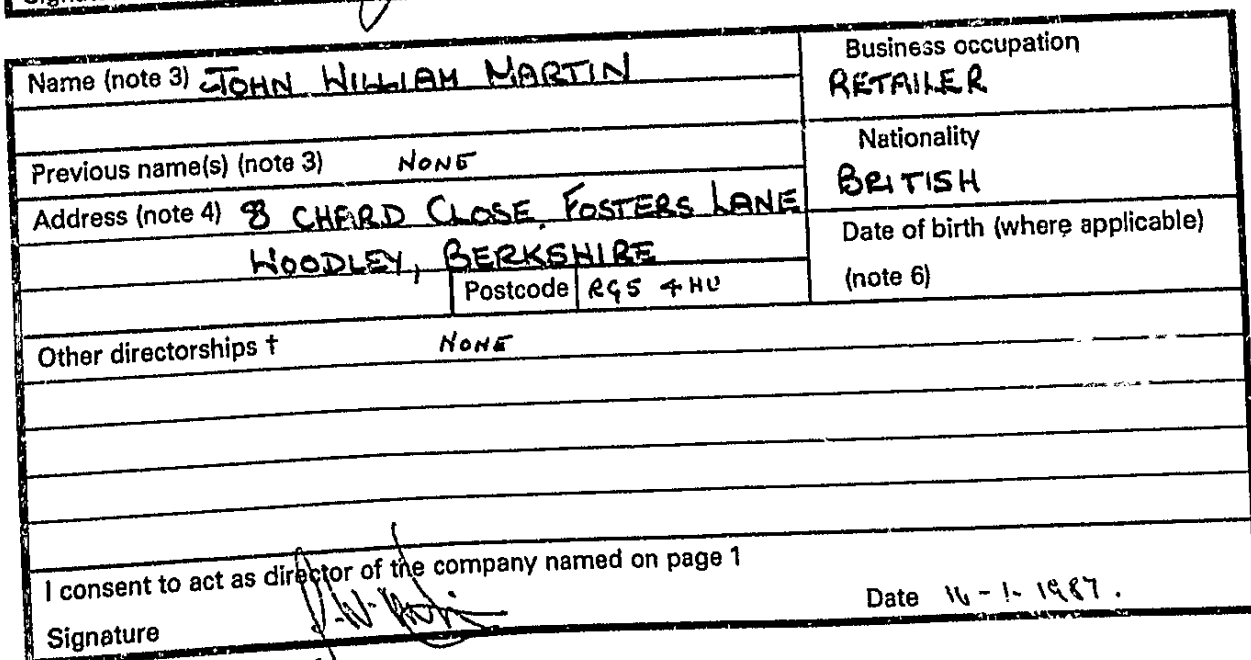 Name (note 3) JOHN WILLIAM MARTIN
Business occupation
RETAILER
Previous name(s) (note 3) NONE
Nationality
BRITISH
Address (note 4) 8 CHARD CLOSE, FOSTERS LANE
WOODLEY, BERKSHIRE
Postcode RG5 4HU
Date of birth (where applicable)
(note 6)
Other directorships † NONE
I consent to act as director of the company named on page 1
Signature
Date 16-1-1987.